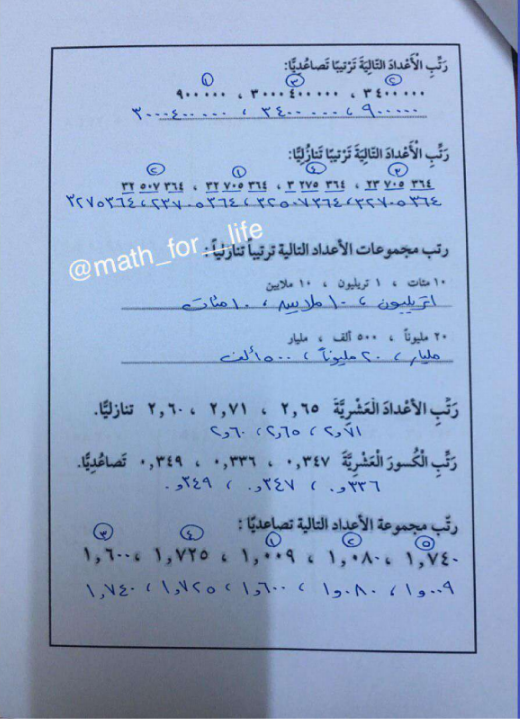 رَتِّبِ الْأَعْدَادَ التَّالِيَةَ تَرْتِيبًا تَصَاعُدِيًّا:
② ③ ①
٣٤٠٠٠٠٠ ، ٣٠٠٠٤٠٠٠٠٠ ، ٩٠٠٠٠٠
٩٠٠٠٠٠ ، ٣٤٠٠٠٠٠ ، ٣٠٠٠٤٠٠٠٠٠
رَتِّبِ الْأَعْدَادَ التَّالِيَةَ تَرْتِيبًا تَنَازُلِيًّا:
③ ④ ① ②
٢٣ ٧٠٥ ٣٦٤ ، ٣ ٢٧٥ ٣٦٤ ، ٣٢ ٧٠٥ ٣٦٤ ، ٣٢ ٥٠٧ ٣٦٤
٣٢٧٠٥٣٦٤ ، ٣٢٥٠٧٣٦٤ ، ٢٣٧٠٥٣٦٤ ، ٣٢٧٥٣٦٤
@math_for__life
رتب مجموعات الأعداد التالية ترتيباً تنازلياً:
١٠ مئات ، ١ تريليون ، ١٠ ملايين
١ تريليون ، ١٠ ملايين ، ١٠ مئات
٢٠ مليوناً ، ٥٠٠ ألف ، مليار
مليار ، ٢٠ مليوناً ، ٥٠٠ ألف
رَتِّبِ الأَعْدَادَ الْعَشَرِيَّةَ ٢,٦٥ ، ٢,٧١ ، ٢,٦٠ تنازليًّا.
٢,٧١ ، ٢,٦٥ ، ٢,٦٠
رَتِّبِ الْكُسُورَ الْعَشَرِيَّةَ ٠,٣٤٧ ، ٠,٣٣٦ ، ٠,٣٤٩ تَصَاعُدِيًّا.
٠,٣٣٦ ، ٠,٣٤٧ ، ٠,٣٤٩
رتّب مجموعة الأعداد التالية تصاعديًّا :
⑤ ② ① ④ ③
١,٧٤٠ ، ١,٠٨٠ ، ١,٠٠٩ ، ١,٧٢٥ ، ١,٦٠٠
١,٠٠٩ ، ١,٠٨٠ ، ١,٦٠٠ ، ١,٧٢٥ ، ١,٧٤٠